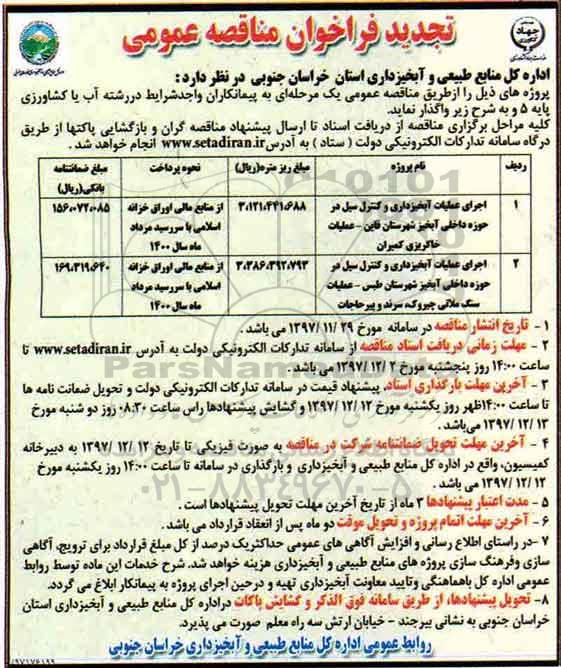 تجدید فراخوان مناقصه عمومی
جهاد
اداره کل منابع طبیعی و آبخیزداری استان خراسان جنوبی در نظر دارد :
پروژه های ذیل را ازطریق مناقصه عمومی یک مرحله‌ای به پیمانکاران واجدشرایط دررشته آب یا کشاورزی
پایه ۵ و به شرح زیر واگذار نماید.
کلیه مراحل برگزاری مناقصه از دریافت اسناد تا ارسال پیشنهاد مناقصه گران و بازگشایی پاکتها از طریق
درگاه سامانه تدارکات الکترونیکی دولت ( ستاد ) به آدرس www.setadiran.ir انجام خواهد شد .
ردیف نام پروژه مبلغ ریز متره(ریال) نحوه پرداخت مبلغ ضمانتنامه
بانکی(ریال)
۱ اجرای عملیات آبخیزداری و کنترل سیل در ۳،۱۲۱،۴۴۱،۶۸۸ از منابع مالی اوراق خزانه ۱۵۶،۰۷۲،۰۸۵
حوزه داخلی آبخیز شهرستان قاین – عملیات اسلامی با سررسید مرداد
خاکریزی کمیران ماه سال ۱۴۰۰
۲ اجرای عملیات آبخیزداری و کنترل سیل در ۳،۳۸۶،۳۹۲،۷۹۳ از منابع مالی اوراق خزانه ۱۶۹،۳۱۹،۶۴۰
حوزه داخلی آبخیز شهرستان طبس – عملیات اسلامی با سررسید مرداد
سنگ ملاتی چیروک، سرند و پیرحاجات ماه سال ۱۴۰۰
۱ - تاریخ انتشار مناقصه در سامانه مورخ ۲۹ /۱۱ /۱۳۹۷ می باشد .
۲ - مهلت زمانی دریافت اسناد مناقصه از سامانه تدارکات الکترونیکی دولت به آدرس www.setadiran.ir تا
ساعت ۱۴:۰۰ روز پنجشنبه مورخ ۲ /۱۲ /۱۳۹۷ می باشد .
۳ - آخرین مهلت بارگذاری اسناد، پیشنهاد قیمت در سامانه تدارکات الکترونیکی دولت و تحویل ضمانت نامه ها
تا ساعت ۱۴:۰۰ظهر روز یکشنبه مورخ ۱۲ /۱۲ /۱۳۹۷ و گشایش پیشنهادها راس ساعت ۰۸:۳۰ روز دو شنبه مورخ
۱۳ /۱۲ /۱۳۹۷ می‌باشد .
۴ - آخرین مهلت تحویل ضمانتنامه شرکت در مناقصه به صورت فیزیکی تا تاریخ ۱۲ /۱۲ /۱۳۹۷ به دبیرخانه
کمیسیون، واقع در اداره کل منابع طبیعی و آبخیزداری و بارگذاری در سامانه تا ساعت ۱۴:۰۰ روز یکشنبه مورخ
۱۲ /۱۲ /۱۳۹۷ می باشد .
۵ - مدت اعتبار پیشنهادها ۳ ماه از تاریخ آخرین مهلت تحویل پیشنهادها است .
۶ - آخرین مهلت اتمام پروژه و تحویل موقت دو ماه پس از انعقاد قرارداد می باشد .
۷ -در راستای اطلاع رسانی و افزایش آگاهی های عمومی حداکثریک درصد از کل مبلغ قرارداد برای ترویج، آگاهی
سازی وفرهنگ سازی پروژه های منابع طبیعی و آبخیزداری هزینه خواهد شد. شرح خدمات این ماده توسط روابط
عمومی اداره کل باهماهنگی وتایید معاونت آبخیزداری تهیه و درحین اجرای پروژه به پیمانکار ابلاغ می گردد.
۸- تحویل پیشنهادها، از طریق سامانه فوق الذکر و گشایش پاکات دراداره کل منابع طبیعی و آبخیزداری استان
خراسان جنوبی به نشانی بیرجند - خیابان ارتش سه راه معلم صورت می پذیرد.
روابط عمومی اداره کل منابع طبیعی و آبخیزداری خراسان جنوبی
۹۷۱۷۶۱۹۹
ParsNamad
۰۲۱-۸۸۳۴۹۶۷۰-۵